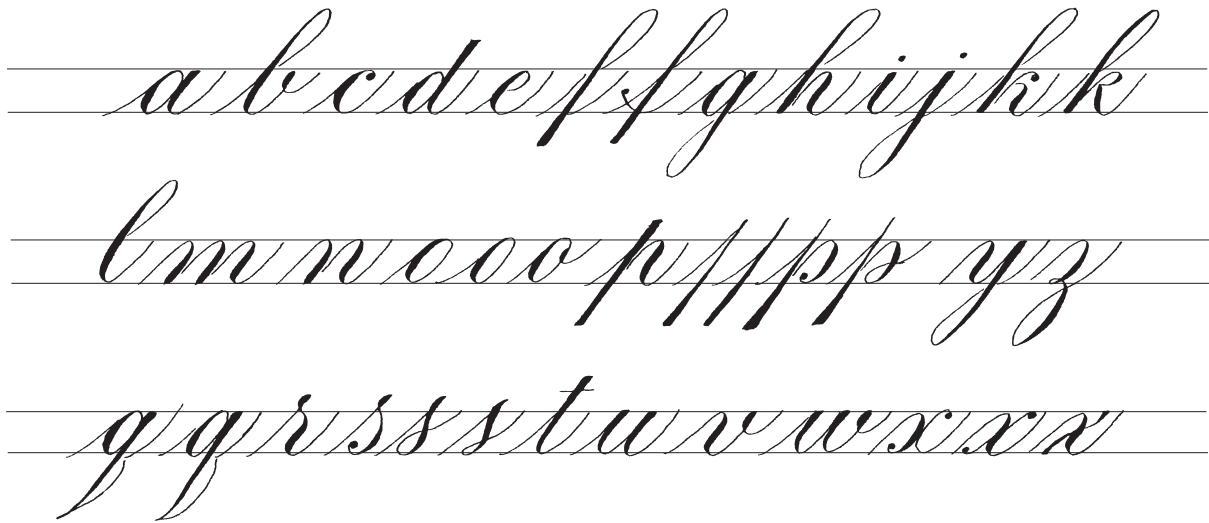 a b c d e f f g h i j k k
l m n o o o p p p p p y z
q q r s s s t u v w x x x